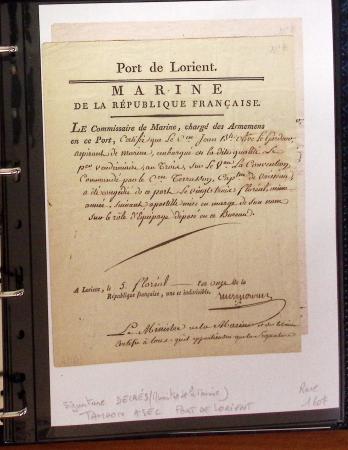 Port de Lorient.
MARINE
DE LA RÉPUBLIQUE FRANÇAISE.
LE Commissaire de Marine, chargé des Armemens
en ce Port, Certifie que Le Cen Jean Bte
aspirant de Marine, embarqué en la dite qualité Le
per vendemiaire an Treize, sur Le Vau Le Convention
Commandé par le Cen Capne de Vaisseau,
a été congédié de ce port Le vingt trois floréal, même
année, suivant apostille mise en marge de son nom
sur le rôle d'Equipage déposé en ce Bureau.
A Lorient, le 5 floréal an onze de la
République française, une et indivisible.
Le Ministre de la Marine
Certifie à tous qu'il appartiendra que la Signature
Signature DECRÈS (Ministre de la Marine)
TAMPON A SEC PORT DE LORIENT
Rare